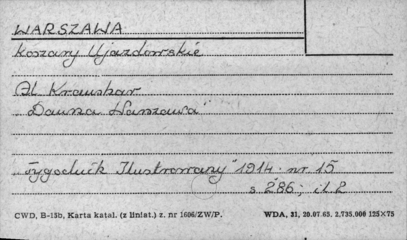 WARSZAWA
Koszary Ujazdowskie
Al. Kraushar
"Dawna Warszawa"
"Tygodnik Ilustrowany" 1914 · nr 15
s. 286; il. 2
CWD, B-15b, Karta katal. (z liniat.) z. nr 1606/ZW/P. WDA, 31, 20.07.65. 2,735.000 125×75